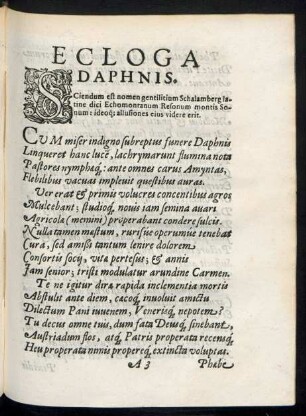 ECLOGA
DAPHNIS.
SCiendum est nomen gentilitium Schalamberg la-
tine dici Echomontanum Resonum montis So-
num: ideoq; allusiones eius videre erit.
CVM miser indigno subreptus funere Daphnis
Linqueret hanc lucē, lachrymarunt flumina nota
Pastores nymphæq;: ante omnes carus Amyntas,
Flebilibus vacuas impleuit questibus auras.
Ver erat & primis volucres concentibus agros
Mulcebant; studioq; nouis iam semina auari
Agricolæ (memini) properabant condere sulcis.
Nulla tamen mæstum, rurisue operumue tenebat
Cura, sed amissi tantum lenire dolorem
Consortis socij, vitæ pertesus; & annis
Iam senior; tristi modulatur arundine Carmen.
Te ne igitur diræ rapida inclementia mortis
Abstulit ante diem, cæcoq; inuoluit amictu
Dilectum Pani iuuenem, Venerisq; nepotem?
Tu decus omne tuis, dum fata Deusq; sinebant,
Austriadum flos, atq; Patris properata recensq;
Heu properata nimis propereq; extincta voluptas.
A 3 Phæbe